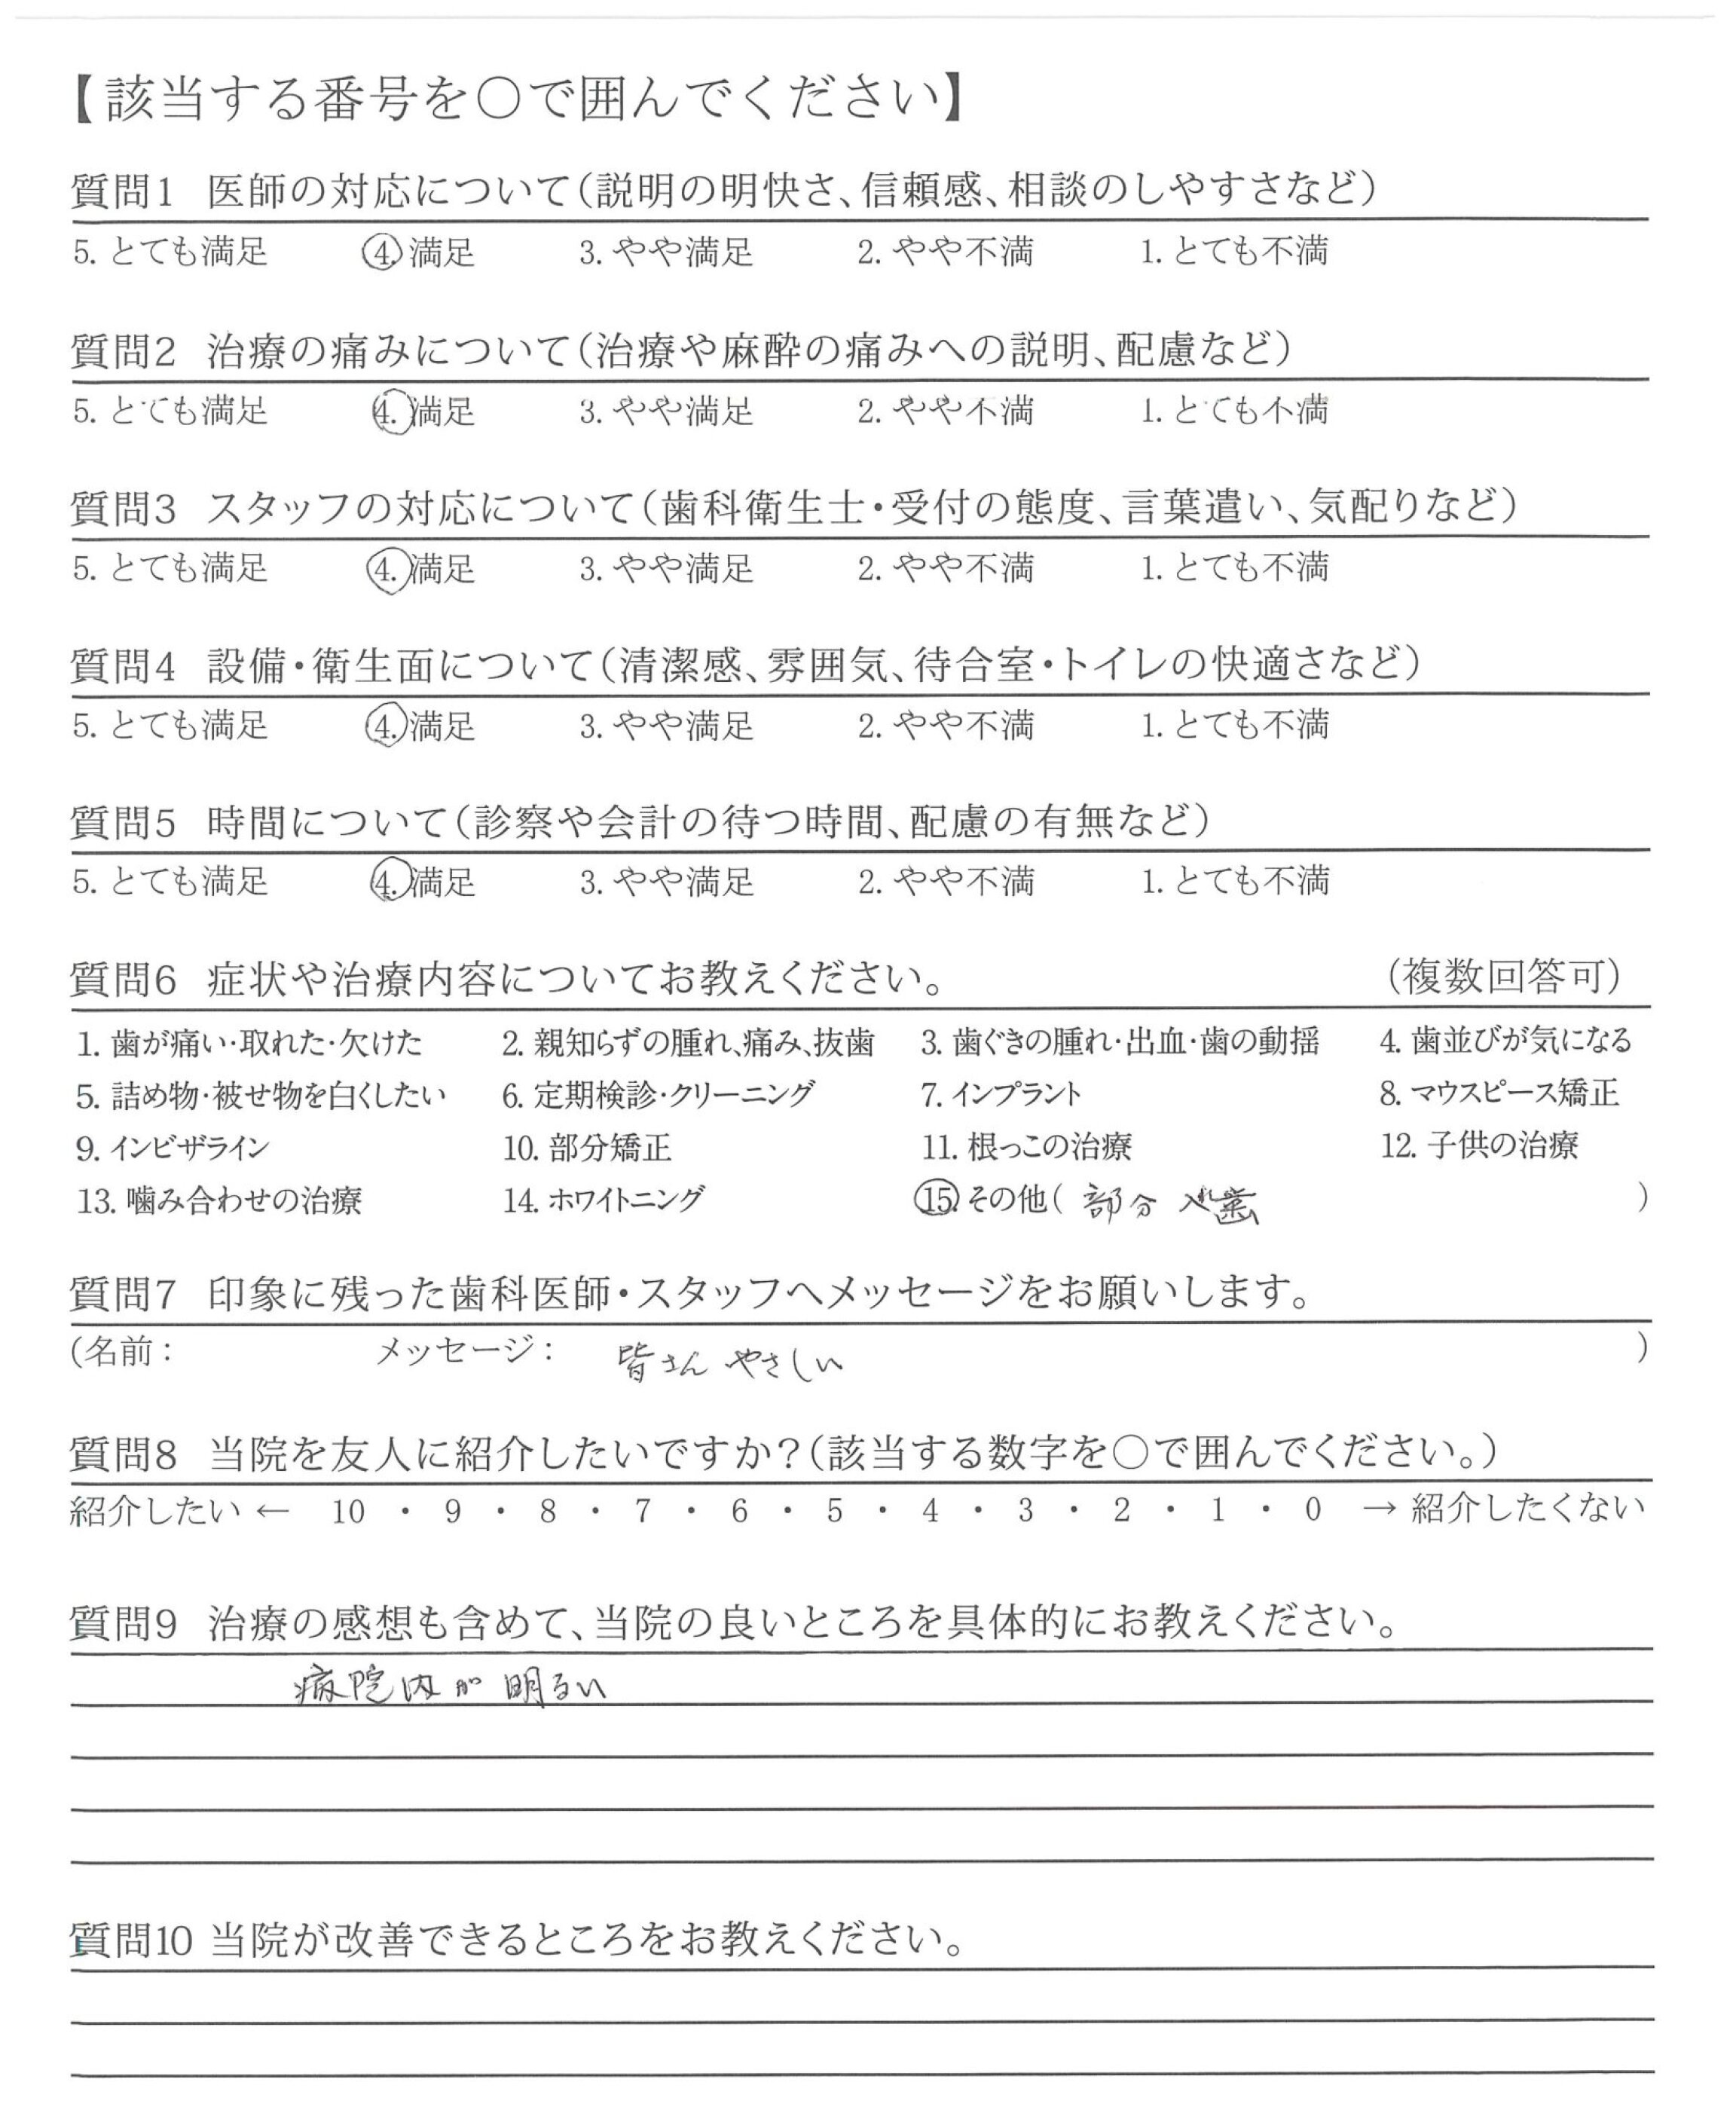 【該当する番号を○で囲んでください】
質問1 医師の対応について(説明の明快さ、信頼感、相談のしやすさなど)
5. とても満足 4. 満足 3. やや満足 2. やや不満 1. とても不満
質問2 治療の痛みについて(治療や麻酔の痛みへの説明、配慮など)
5. とても満足 4. 満足 3. やや満足 2. やや不満 1. とても不満
質問3 スタッフの対応について(歯科衛生士・受付の態度、言葉遣い、気配りなど)
5. とても満足 4. 満足 3. やや満足 2. やや不満 1. とても不満
質問4 設備・衛生面について(清潔感、雰囲気、待合室・トイレの快適さなど)
5. とても満足 4. 満足 3. やや満足 2. やや不満 1. とても不満
質問5 時間について(診察や会計の待つ時間、配慮の有無など)
5. とても満足 4. 満足 3. やや満足 2. やや不満 1. とても不満
質問6 症状や治療内容についてお教えください。 (複数回答可)
1. 歯が痛い・取れた・欠けた 2. 親知らずの腫れ、痛み、抜歯 3. 歯ぐきの腫れ・出血・歯の動揺 4. 歯並びが気になる
5. 詰め物・被せ物を白くしたい 6. 定期検診・クリーニング 7. インプラント 8. マウスピース矯正
9. インビザライン 10. 部分矯正 11. 根っこの治療 12. 子供の治療
13. 噛み合わせの治療 14. ホワイトニング 15. その他( 部分入れ歯 )
質問7 印象に残った歯科医師・スタッフへメッセージをお願いします。
(名前: メッセージ: 皆さん やさしい )
質問8 当院を友人に紹介したいですか?(該当する数字を○で囲んでください。)
紹介したい ← 10 ・ 9 ・ 8 ・ 7 ・ 6 ・ 5 ・ 4 ・ 3 ・ 2 ・ 1 ・ 0 → 紹介したくない
質問9 治療の感想も含めて、当院の良いところを具体的にお教えください。
病院内が 明るい
質問10 当院が改善できるところをお教えください。